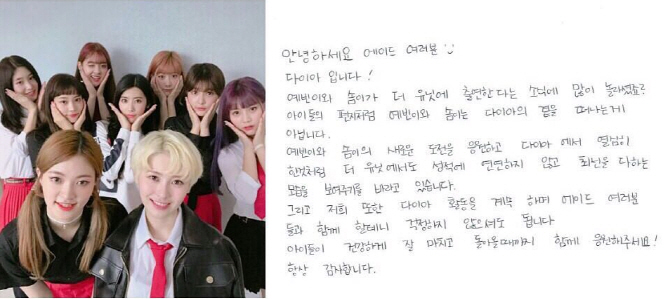 안녕하세요 에이드 여러분
다이아 입니다!
예빈이와 솜이가 더 유닛에 출연한다는 소식에 많이 놀라셨죠?
아이들의 편지처럼 예빈이와 솜이는 다이아의 곁을 떠나는게
아닙니다.
예빈이와 솜이의 새로운 도전을 응원하고 다이아 에서 열심히
한것처럼 더 유닛에서도 성적에 연연하지 않고 최선을 다하는
모습을 보여주기를 바라고 있습니다.
그리고 저희 또한 다이아 활동을 계속 하며 에이드 여러분
들과 함께 할테니 걱정하지 않으셔도 됩니다
아이들이 건강하게 잘 마치고 돌아올때까지 함께 응원해주세요!
항상 감사합니다.